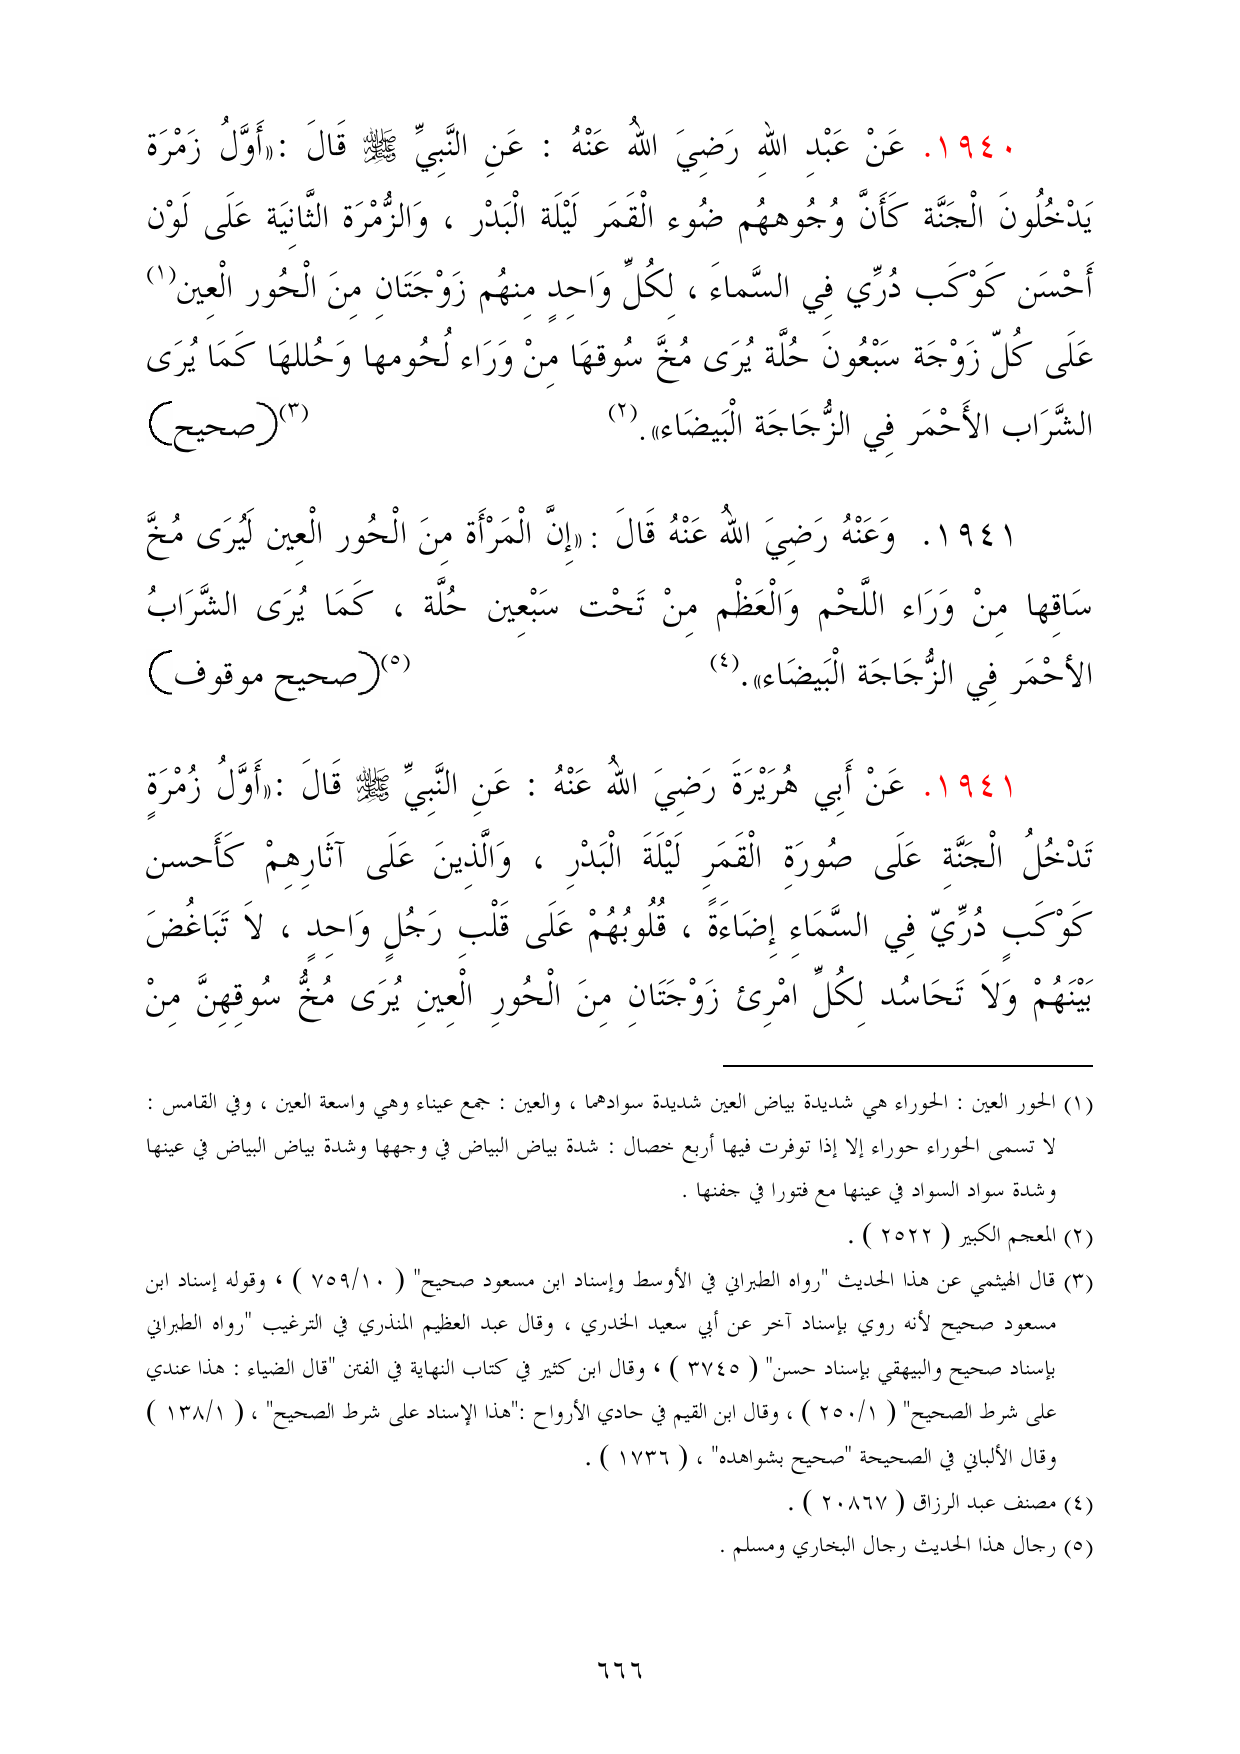 ١٩٤٠. عَنْ عَبْدِ اللهِ رَضِيَ اللهُ عَنْهُ : عَنِ النَّبِيِّ ﷺ قَالَ :«أَوَّلُ زَمْرَة
يَدْخُلُونَ الْجَنَّة كَأَنَّ وُجُوههُم ضُوء الْقَمَر لَيْلَة الْبَدْر ، وَالزُّمْرَة الثَّانِيَة عَلَى لَوْن
أَحْسَن كَوْكَب دُرِّي فِي السَّماءَ ، لِكُلِّ وَاحِدٍ مِنهُم زَوْجَتَانِ مِنَ الْحُور الْعِين(١)
عَلَى كُلّ زَوْجَة سَبْعُونَ حُلَّة يُرَى مُخَّ سُوقهَا مِنْ وَرَاء لُحُومها وَحُللهَا كَمَا يُرَى
الشَّرَاب الأَحْمَر فِي الزُّجَاجَة الْبَيضَاء».(٢) (٣)(صحيح)
١٩٤١. وَعَنْهُ رَضِيَ اللهُ عَنْهُ قَالَ :«إِنَّ الْمَرْأَة مِنَ الْحُور الْعِين لَيُرَى مُخَّ
سَاقِها مِنْ وَرَاء اللَّحْم وَالْعَظْم مِنْ تَحْت سَبْعِين حُلَّة ، كَمَا يُرَى الشَّرَابُ
الأحْمَر فِي الزُّجَاجَة الْبَيضَاء».(٤) (٥)(صحيح موقوف)
١٩٤١. عَنْ أَبِي هُرَيْرَةَ رَضِيَ اللهُ عَنْهُ : عَنِ النَّبِيِّ ﷺ قَالَ :«أَوَّلُ زُمْرَةٍ
تَدْخُلُ الْجَنَّةِ عَلَى صُورَةِ الْقَمَرِ لَيْلَةَ الْبَدْرِ ، وَالَّذِينَ عَلَى آثَارِهِمْ كَأَحسن
كَوْكَبٍ دُرِّيّ فِي السَّمَاءِ إِضَاءَةً ، قُلُوبُهُمْ عَلَى قَلْبِ رَجُلٍ وَاحِدٍ ، لاَ تَبَاغُضَ
بَيْنَهُمْ وَلاَ تَحَاسُد لِكُلِّ امْرِئ زَوْجَتَانِ مِنَ الْحُورِ الْعِينِ يُرَى مُخُّ سُوقِهِنَّ مِنْ
(١) الحور العين : الحوراء هي شديدة بياض العين شديدة سوادهما ، والعين : جمع عيناء وهي واسعة العين ، وفي القامس :
لا تسمى الحوراء حوراء إلا إذا توفرت فيها أربع خصال : شدة بياض البياض في وجهها وشدة بياض البياض في عينها
وشدة سواد السواد في عينها مع فتورا في جفنها .
(٢) المعجم الكبير ( ٢٥٢٢ ) .
(٣) قال الهيثمي عن هذا الحديث "رواه الطبراني في الأوسط وإسناد ابن مسعود صحيح" ( ٧٥٩/١٠ ) ، وقوله إسناد ابن
مسعود صحيح لأنه روي بإسناد آخر عن أبي سعيد الخدري ، وقال عبد العظيم المنذري في الترغيب "رواه الطبراني
بإسناد صحيح والبيهقي بإسناد حسن" ( ٣٧٤٥ ) ، وقال ابن كثير في كتاب النهاية في الفتن "قال الضياء : هذا عندي
على شرط الصحيح" ( ٢٥٠/١ ) ، وقال ابن القيم في حادي الأرواح :"هذا الإسناد على شرط الصحيح" ، ( ١٣٨/١ )
وقال الألباني في الصحيحة "صحيح بشواهده" ، ( ١٧٣٦ ) .
(٤) مصنف عبد الرزاق ( ٢٠٨٦٧ ) .
(٥) رجال هذا الحديث رجال البخاري ومسلم .
٦٦٦